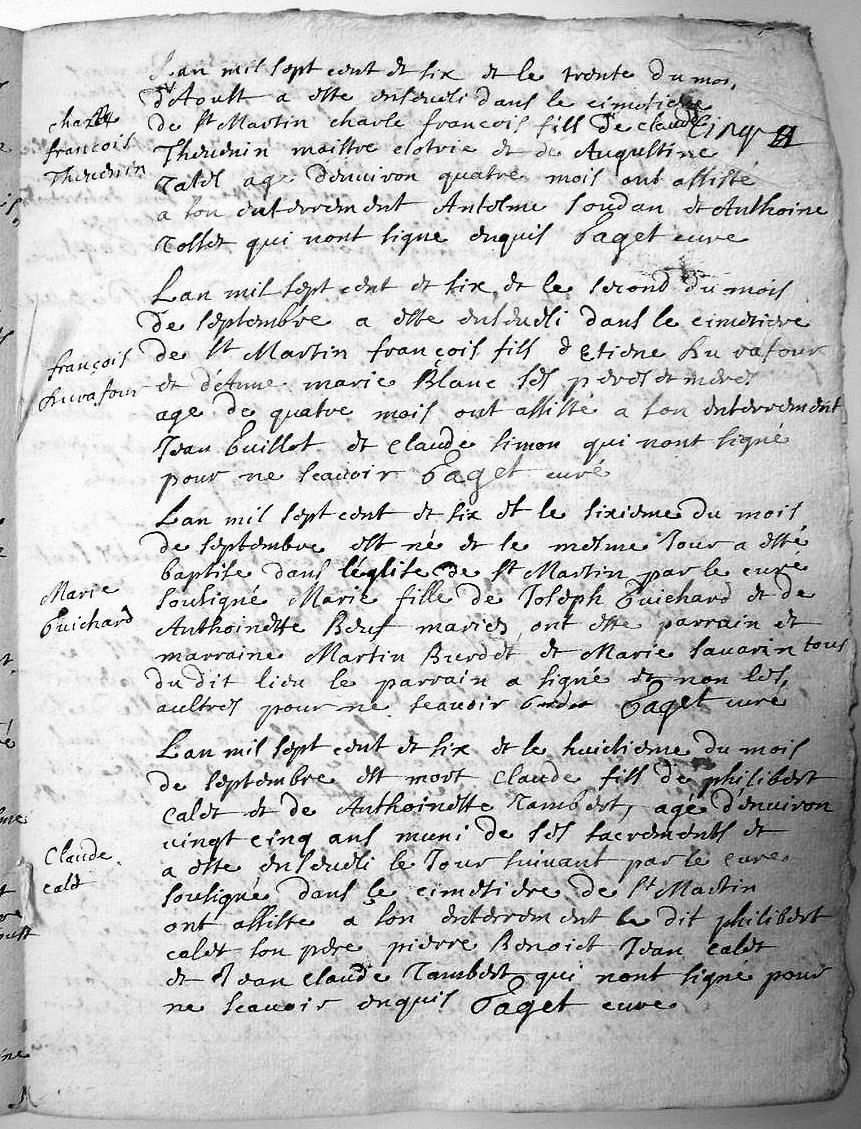 Lan mil sept cent et six et le trente du moi,
d'Aoust a este enseveli dans le cimetiere
de st Martin charle francois fill de claude
cinq
charle
francois
Thevenin
Thevenin maistre et de Augustine
agé denviron quatre mois ont assisté
a son enterrement Antelme Soudan et Anthoine
qui nont signe enquis Paget cure
Lan mil sept cent et six, et le second du mois
de septembre a este enseveli dans le cimetiere
françois
de st Martin françois fill d'Etiene
et d'Anne marie Blanc ses peres et meres
age de quatre mois ont assisté a son enterrement
Jean Guillot et claude Simon qui nont signé
pour ne scavoir Paget curé
Lan mil sept cent et six et le sixieme du mois
de septembre est né et le mesme Jour a esté
baptise dans léglise de st Martin par le cure
Marie
Guichard
sousigné Marie fille de Joseph Guichard et de
Anthoinette Beuf mariés, ont este parrain et
marraine Martin Burdet et Marie Savarin tous
du dit lieu le parrain a signé et non les,
aultres pour ne scavoir Paget curé
Lan mil sept cent et six et le huictieme du mois
de septembre est mort claude fill de philibert
Calet et de Anthoinette Tambert, agé d'environ
vingt cinq ans muni de ses sacrements et
Claude
calet
a este enseveli le Jour suivant par le cure
sousigné dans le cimetiere de st Martin
ont assiste a son enterrement le dit philibert
calet son pere pierre Benoict Jean calet
et Jean claude Tambert, qui nont signé pour
ne scavoir enquis Paget cure